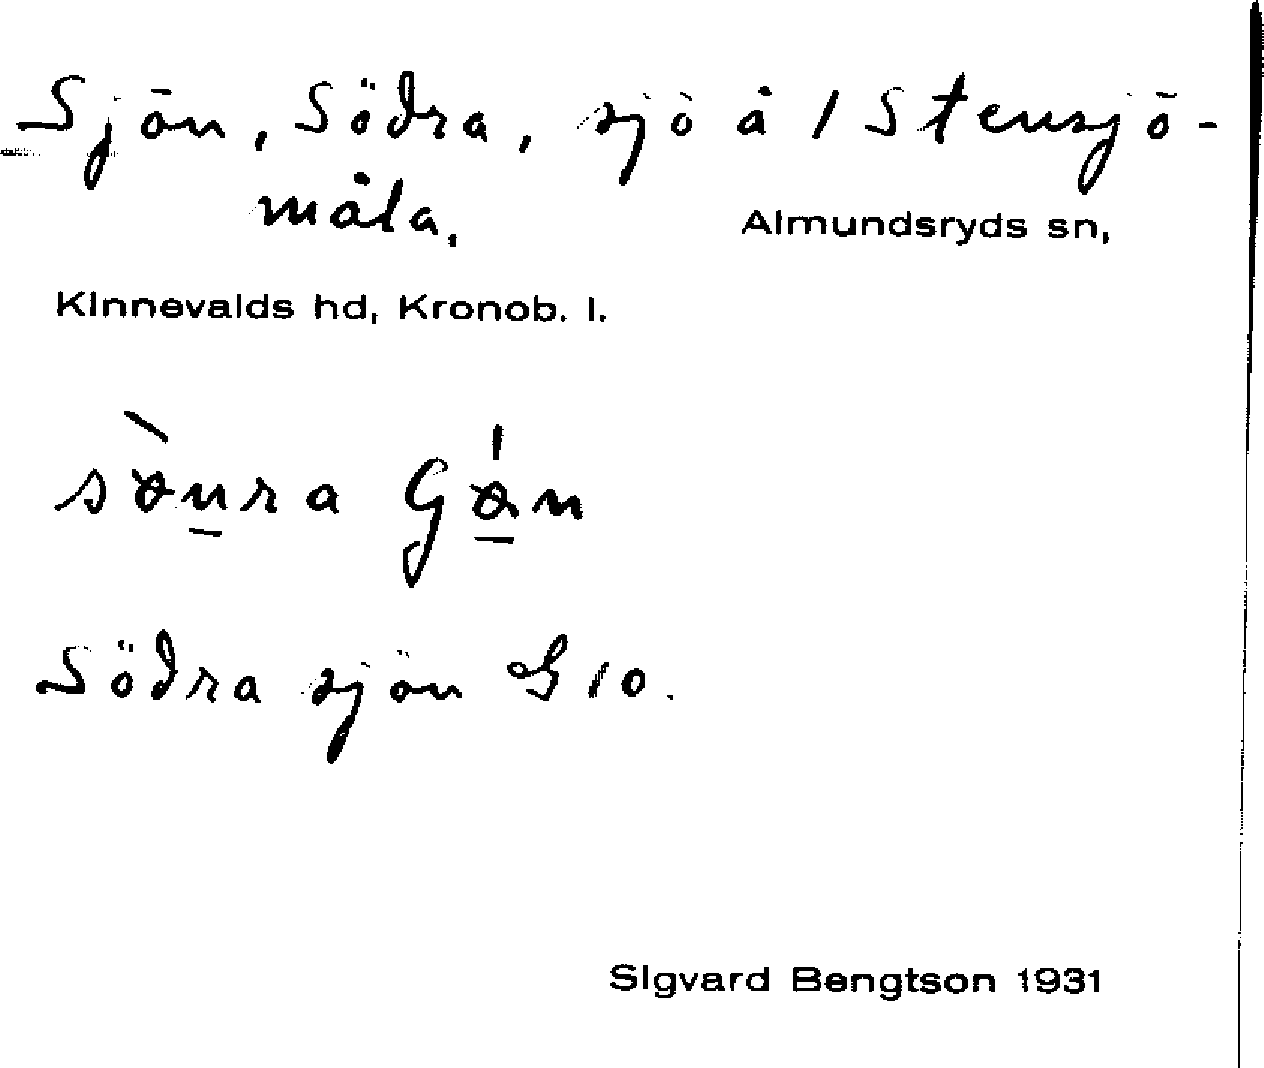 Sjön, Södra, sjö å 1 Stensjö-
måla,
Almundsryds sn,
Kinnevalds hd, Kronob. l.
Södra sjön G 10.
Sigvard Bengtson 1931